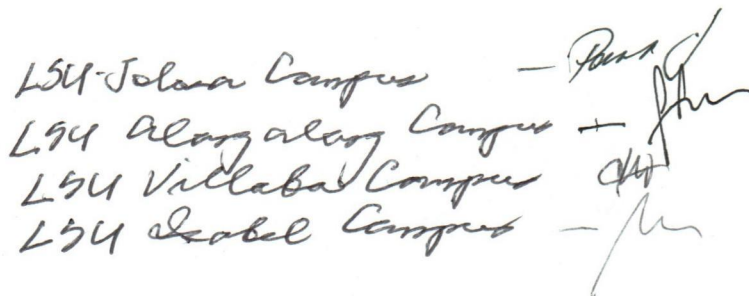 LSU-Tolosa Campus -
LSU Alangalang Campus -
LSU Villaba Campus
LSU Isabel Campus -